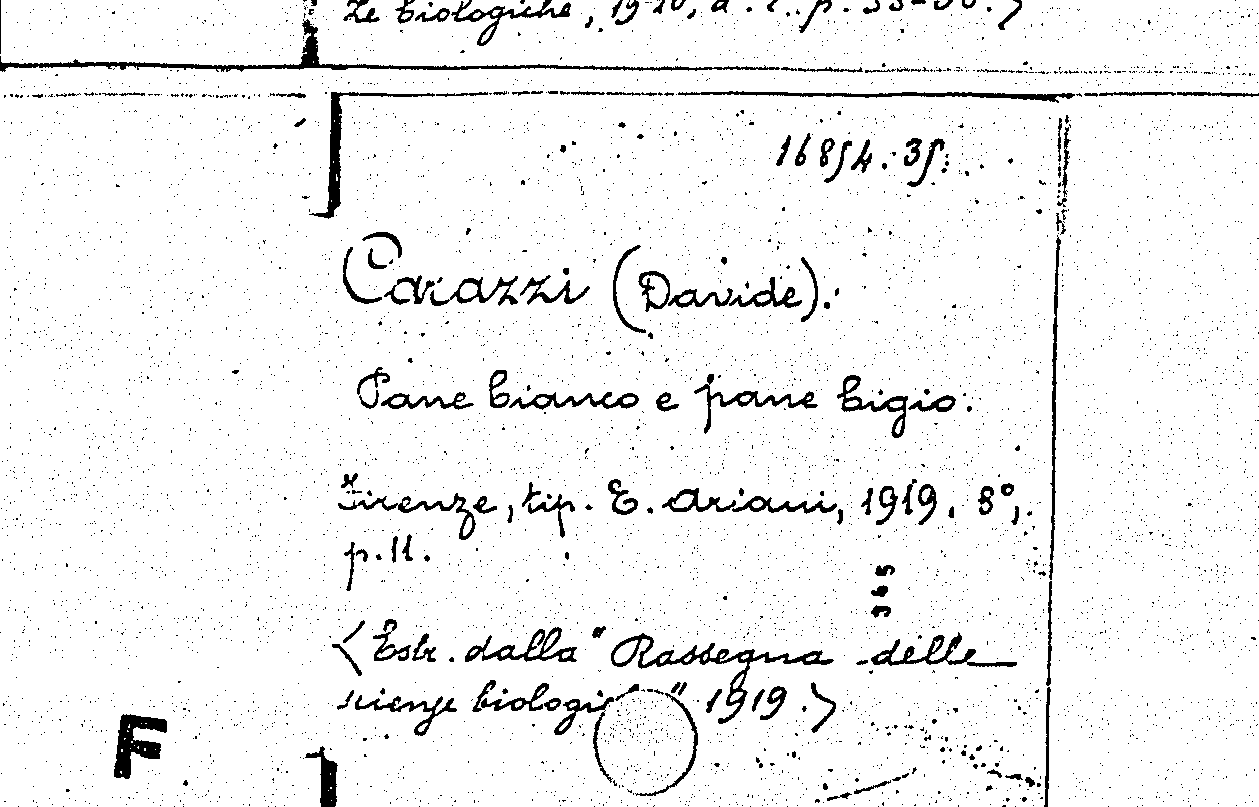 ze biologiche, 1920, a. 2. p. 33-36.>
16854.35.
Carazzi (Davide).
Pane bianco e pane bigio.
Firenze, tip. E. Ariani, 1919, 8°,
p. 11.
365
<Estr. dalla "Rassegna delle
scienze biologi " 1919.>
F